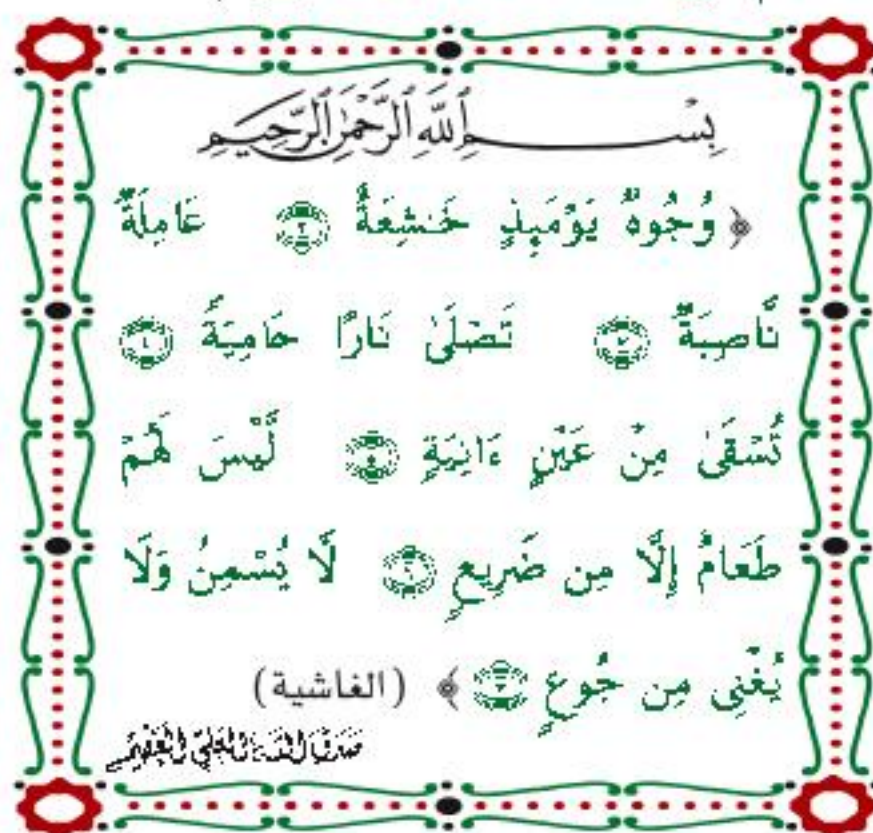 بِسْمِ ٱللَّهِ ٱلرَّحْمَٰنِ ٱلرَّحِيمِ
﴿ وُجُوهٌ يَوْمَئِذٍ خَٰشِعَةٌ ٢ عَامِلَةٌ
نَّاصِبَةٌ ٣ تَصْلَىٰ نَارًا حَامِيَةً ٤
تُسْقَىٰ مِنْ عَيْنٍ ءَانِيَةٍ ٥ لَّيْسَ لَهُمْ
طَعَامٌ إِلَّا مِن ضَرِيعٍ ٦ لَّا يُسْمِنُ وَلَا
يُغْنِى مِن جُوعٍ ٧ ﴾ (الغاشية)
صدق الله العلي العظيم